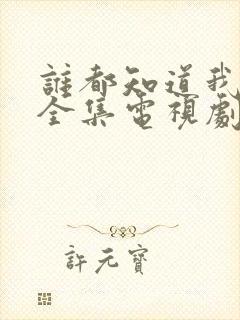 誰都知道我
全集電視劇
許元寶